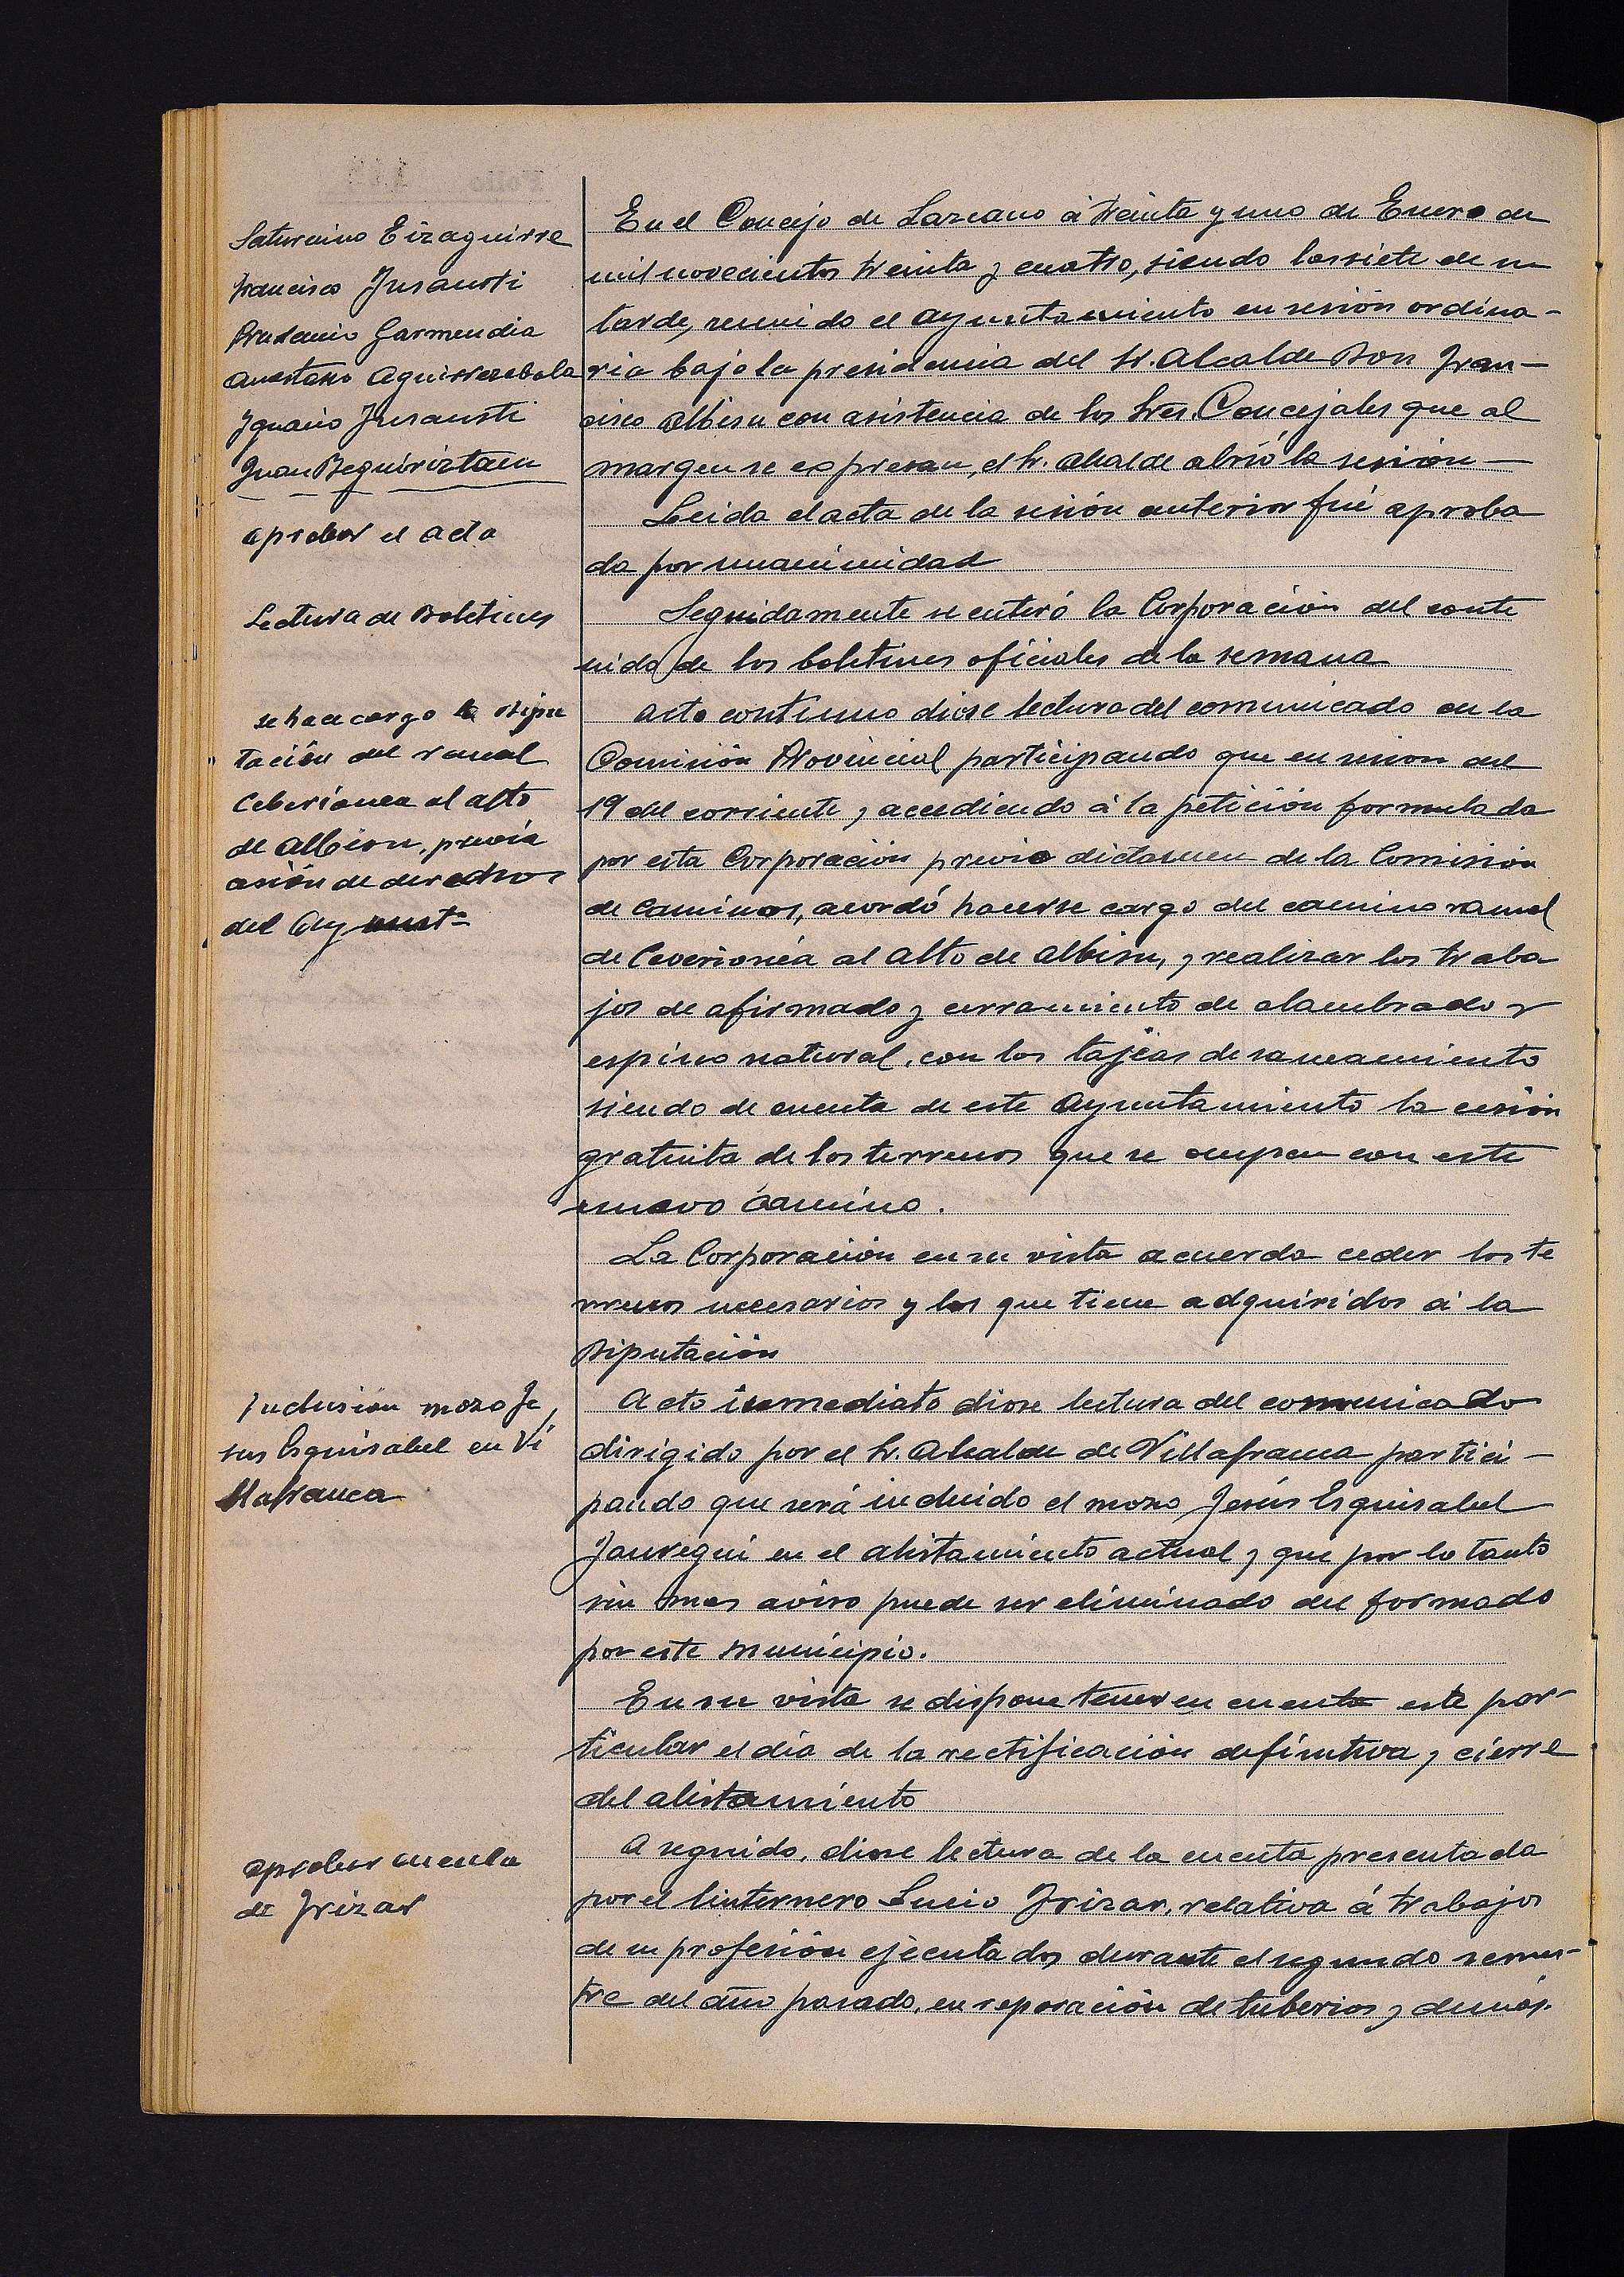 Saturnino Eizaguirre
Francisco Insausti
Prudencio Garmendia
Anastasio Aguirrezabala
Ignacio Insausti
Juan Beguiriztain
aprobar el acta
Lectura de Boletines
se hace cargo la Dipu
tación del ramal
Ceberionea al alto
de Albisu, previa
cesión de derechos
del Ayuntº
Inclusion mozo Je
sus Esquisabel en Vi
llafranca
aprobar cuenta
de Irizar
En el Concejo de Lazcano á treinta y uno de Enero de
mil novecientos treinta y cuatro, siendo las siete de su
tarde, reunido el Ayuntamiento en sesión ordina-
ria bajo la presidencia del Sr. Alcalde Don Fran-
cisco Albisu con asistencia de los Sres. Concejales que al
margen se expresan, el Sr. Alcalde abrió la sesión
Leida el acta de la sesión anterior fué aproba
da por unanimidad
Seguidamente se enteró la Corporación del conte
nido de los boletines oficiales de la semana
Acto continuo diose lectura del comunicado de la
Comisión Provincial participando que en sesion del
19 del corriente y accediendo á la petición formulada
por esta Corporación previo dictamen de la Comision
de Caminos, acordó hacerse cargo del camino ramal
de Ceverionéa al alto de Albisu, y realizar los traba
jos de afirmado y cerramiento de alambrado y
espino natural, con las tajeas de saneamiento
siendo de cuenta de este Ayuntamiento la cesión
gratuita de los terrenos que se ocupen con este
nuevo camino.
La Corporación en su vista acuerda ceder los te
rrenos necesarios y los que tiene adquiridos á la
Diputación
Acto inmediato diose lectura del comunicado
dirigido por el Sr. Alcalde de Villafranca partici-
pando que será incluido el mozo Jesús Esquisabel
Jauregui en el alistamiento actual y que por lo tanto
sin mas aviso puede ser eliminado del formado
por este Municipio.
En su vista se dispone tener en cuenta este par-
ticular el día de la rectificación definitiva y cierre
del alistamiento
A seguido, diose lectura de la cuenta presentada
por el linternero Lucio Irizar, relativa á trabajos
de su profesión ejecutados durante el segundo semes-
tre del año pasado, en reparación de tuberias y demás